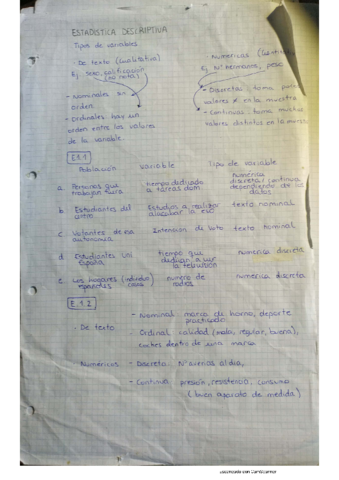 ESTADÍSTICA DESCRIPTIVA
Tipos de variables
- De texto (cualitativa)
Ej. Sexo, calificación (no nota)
Numéricas
Ej. Nº hermanos, peso
- Nominales sin orden.
- Ordinales hay un orden entre los valores de la variable.
- Discreta: toma pocos valores ≠ en la muestra
- Continua: toma muchos valores distintos en la muestra
E1.1
Población variable tipo de variable
a Personas que trabajan fuera tiempo dedicado a tareas dom. numérica discreta/continua dependiendo de los datos
b Estudiantes del Estudios a realizar al acabar la eso texto nominal
c Votantes de esa autonomía Intención de voto texto nominal
d Estudiantes España tiempo que dedican a ver la televisión numérica discreta
e Los hogares españoles número de radios numérica discreta
E.1.2
- De texto
- Nominal marca de horno, deporte practicado
- Ordinal calidad (malo, regular, bueno), coches dentro de una marca
- Numéricas
- Discreta Nº al día,
- Continua presión, resistencia, consumo
(buen aparato de medida)
Escaneado con CamScanner